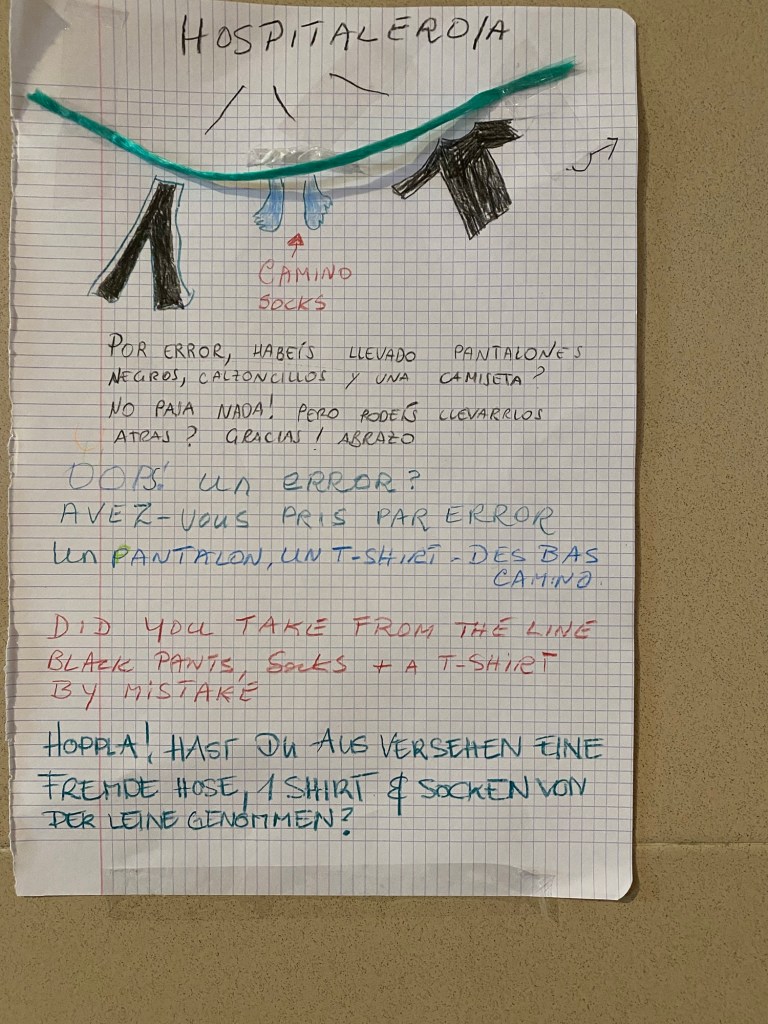 HOSPITALERO/A
CAMINO
SOCKS
POR ERROR, HABEÍS LLEVADO PANTALONES
NEGROS, CALZONCILLOS Y UNA CAMISETA?
NO PASA NADA! PERO PODEÍS LLEVARRLOS
ATRAS? GRACIAS! ABRAZO
OOPS! un ERROR?
AVEZ-VOUS PRIS PAR ERROR
Un PANTALON, UN T-SHIRT - DES BAS
CAMINO.
DID YOU TAKE FROM THE LINE
BLACK PANTS, SOCKS + A T-SHIRT
BY MISTAKE
HOPPLA! HAST DU AUS VERSEHEN EINE
FREMDE HOSE, 1 SHIRT & SOCKEN VON
DER LEINE GENOMMEN?